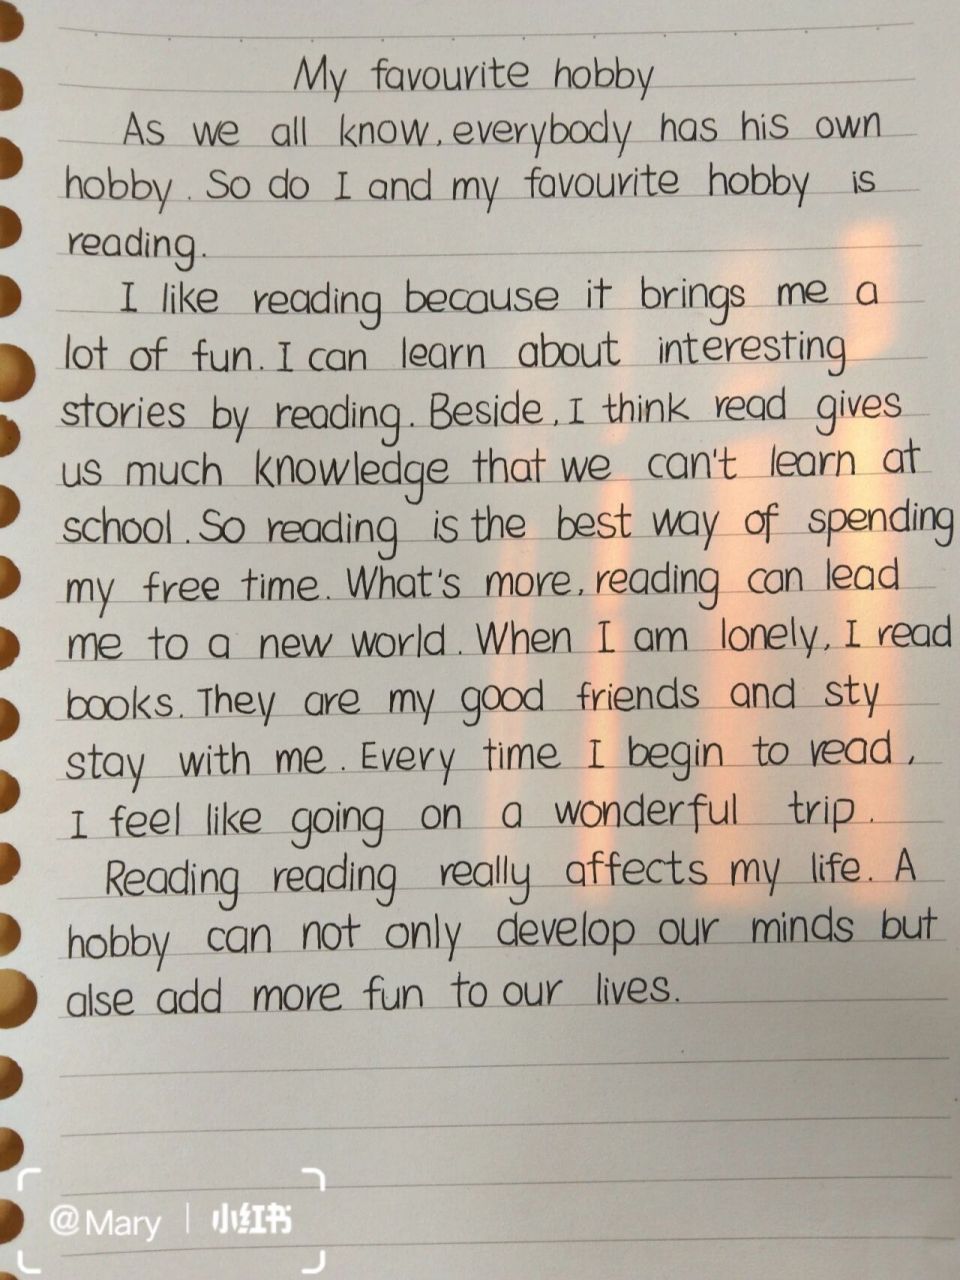 My favourite hobby
As we all know, everybody has his own
hobby. So do I and my favourite hobby is
reading.
I like reading because it brings me a
lot of fun. I can learn about interesting
stories by reading. Beside, I think read gives
us much knowledge that we can't learn at
school. So reading is the best way of spending
my free time. What's more, reading can lead
me to a new world. When I am lonely, I read
books. They are my good friends and sty
stay with me. Every time I begin to read,
I feel like going on a wonderful trip.
Reading reading really affects my life. A
hobby can not only develop our minds but
alse add more fun to our lives.
@Mary | 小红书